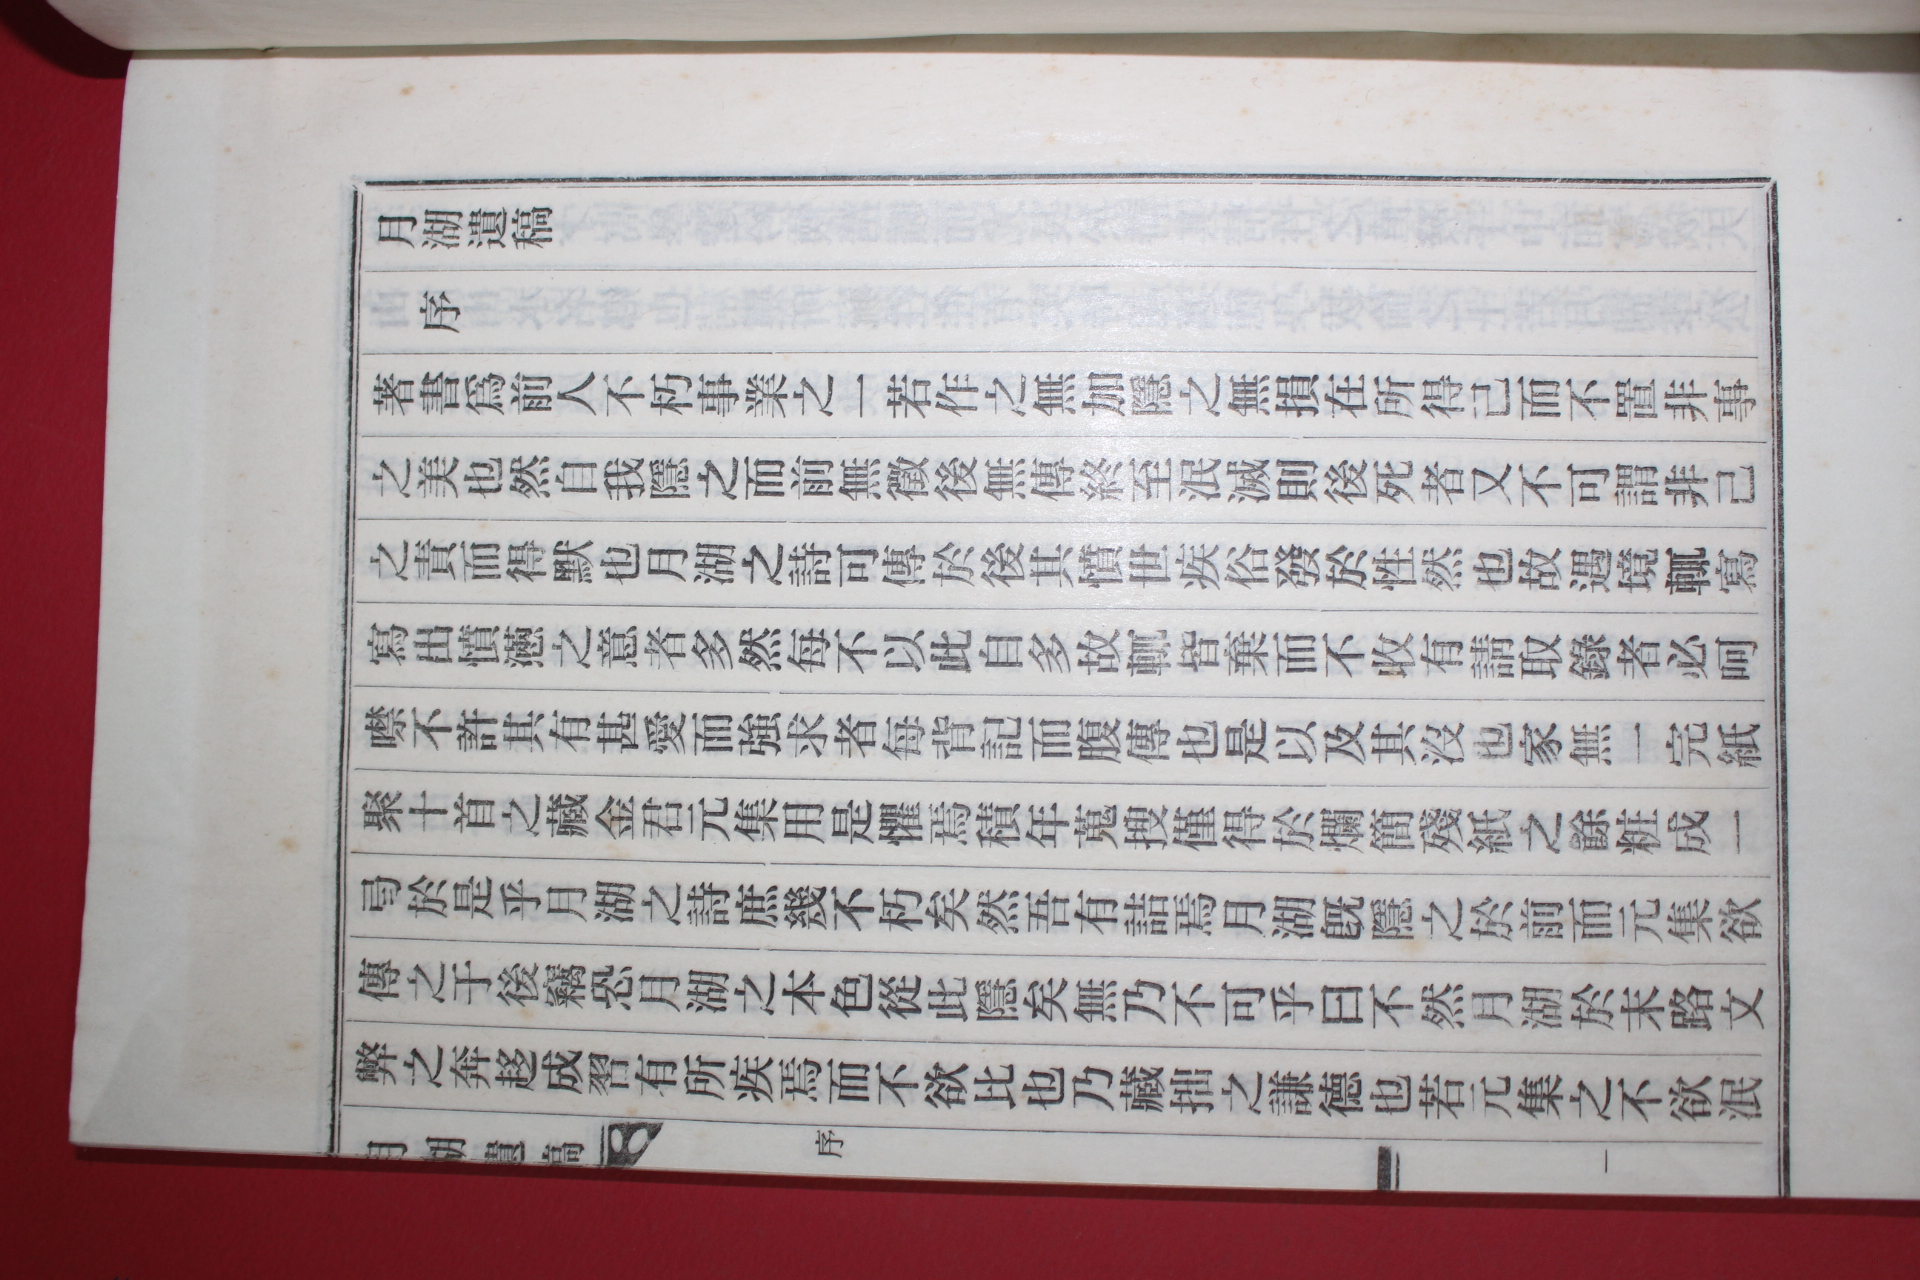 月湖遺稿
序
著書爲前人不朽事業之一若作之無加隱之無損在所得己而不置非事
之美也然自我隱之而前無徵後無傳終至泯滅則後死者又不可謂非己
之責而得默也月湖之詩可傳於後其憤世疾俗發於性然也故遇境輒寫
寫出憤懣之意者多然每不以此自多故輒皆棄而不收有請取錄者必呵
噤不許其有甚愛而強求者每背記而腹傳也是以及其沒也家無一完紙
聚十首之藏金君元集用是懼焉積年蒐搜僅得於爛簡殘紙之餘粧成一
弓於是乎月湖之詩庶幾不朽矣然吾有詰焉月湖旣隱之於前而元集欲
傳之于後竊恐月湖之本色從此隱矣無乃不可乎曰不然月湖於末路文
弊之奔趍成習有所疾焉而不欲比也乃藏拙之謙德也若元集之不欲泯
月湖遺稿
序
一